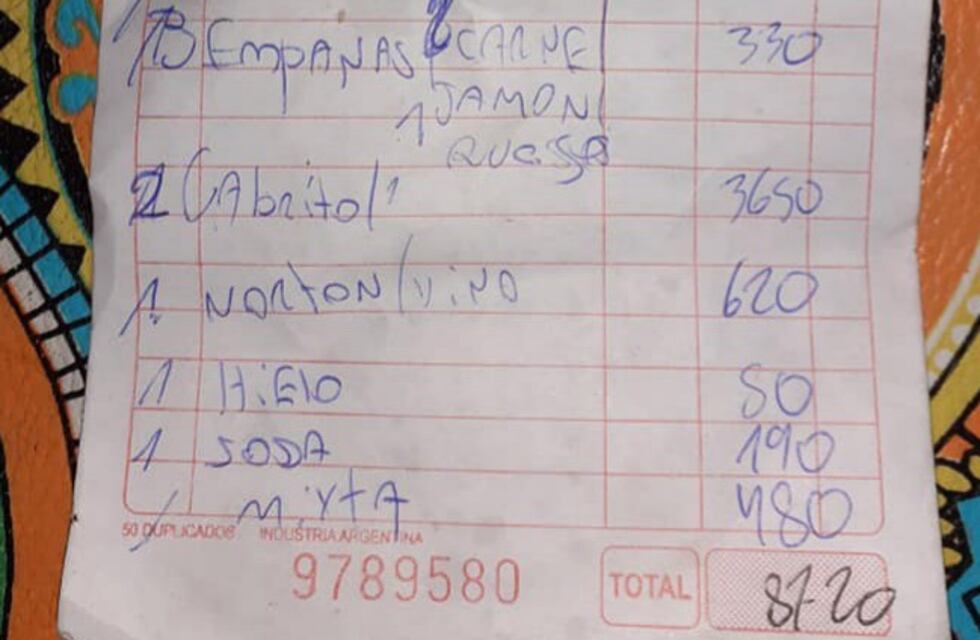 13 EMPANAS CARNE 330
1 JAMON
QUESSO
2 CABRITO 3650
1 NORTON/VINO 620
1 HIELO 50
1 SODA 190
1 MIXTA 480
50 DUPLICADOS INDUSTRIA ARGENTINA
9789580 TOTAL 8720